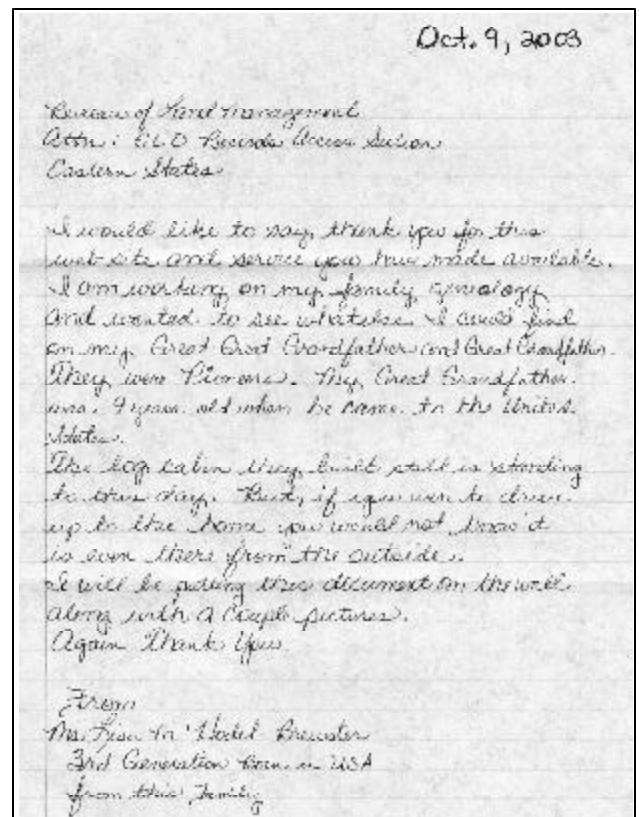 Oct. 9, 2003
Bureau of Land Management
Attn: GLO Records Access
Eastern States
I would like to say, thank you for this
web site and service you have made available.
I am working on my family genealogy
and wanted to see what else I could find
on my Great Great Grandfather and Great Grandfather.
They were Pioneers. My Great Grandfather
was 9 years old when he came to the United
States.
The log cabin they built still is standing
to this day. But, if you were to drive
up to the home you would not know it
is even there from the outside.
I will be putting this document on the wall
along with a couple pictures.
Again Thank You
From
Ms. Lisa M. Brewster
3rd Generation Born in USA
from this family